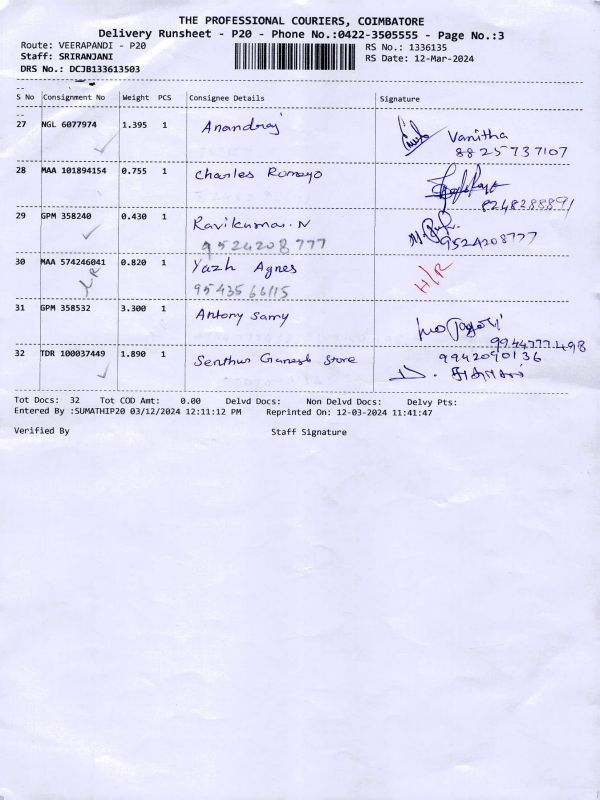 THE PROFESSIONAL COURIERS, COIMBATORE
Delivery Runsheet - P20 - Phone No.:0422-3505555 - Page No.:3
Route: VEERAPANDI - P20
RS No.: 1336135
Staff: SRIRANJANI
RS Date: 12-Mar-2024
DRS No.: DCJB133613503
S No Consignment No Weight PCS Consignee Details Signature
27 NGL 6077974 1.395 1 Anandraj Vanitha
8825737107
28 MAA 101894154 0.755 1 Charles Romayo
8248288891
29 GPM 358240 0.430 1 Ravikumar.N
9524208777 9524208777
30 MAA 574246041 0.820 1 Yazh Agnes H/R
9543566115
31 GPM 358532 3.300 1 Antony Samy
9944777498
32 TDR 100037449 1.890 1 Senthur Ganesh Store 9942090136
Tot Docs: 32 Tot COD Amt: 0.00 Delvd Docs: Non Delvd Docs: Delvy Pts:
Entered By :SUMATHIP20 03/12/2024 12:11:12 PM Reprinted On: 12-03-2024 11:41:47
Verified By Staff Signature